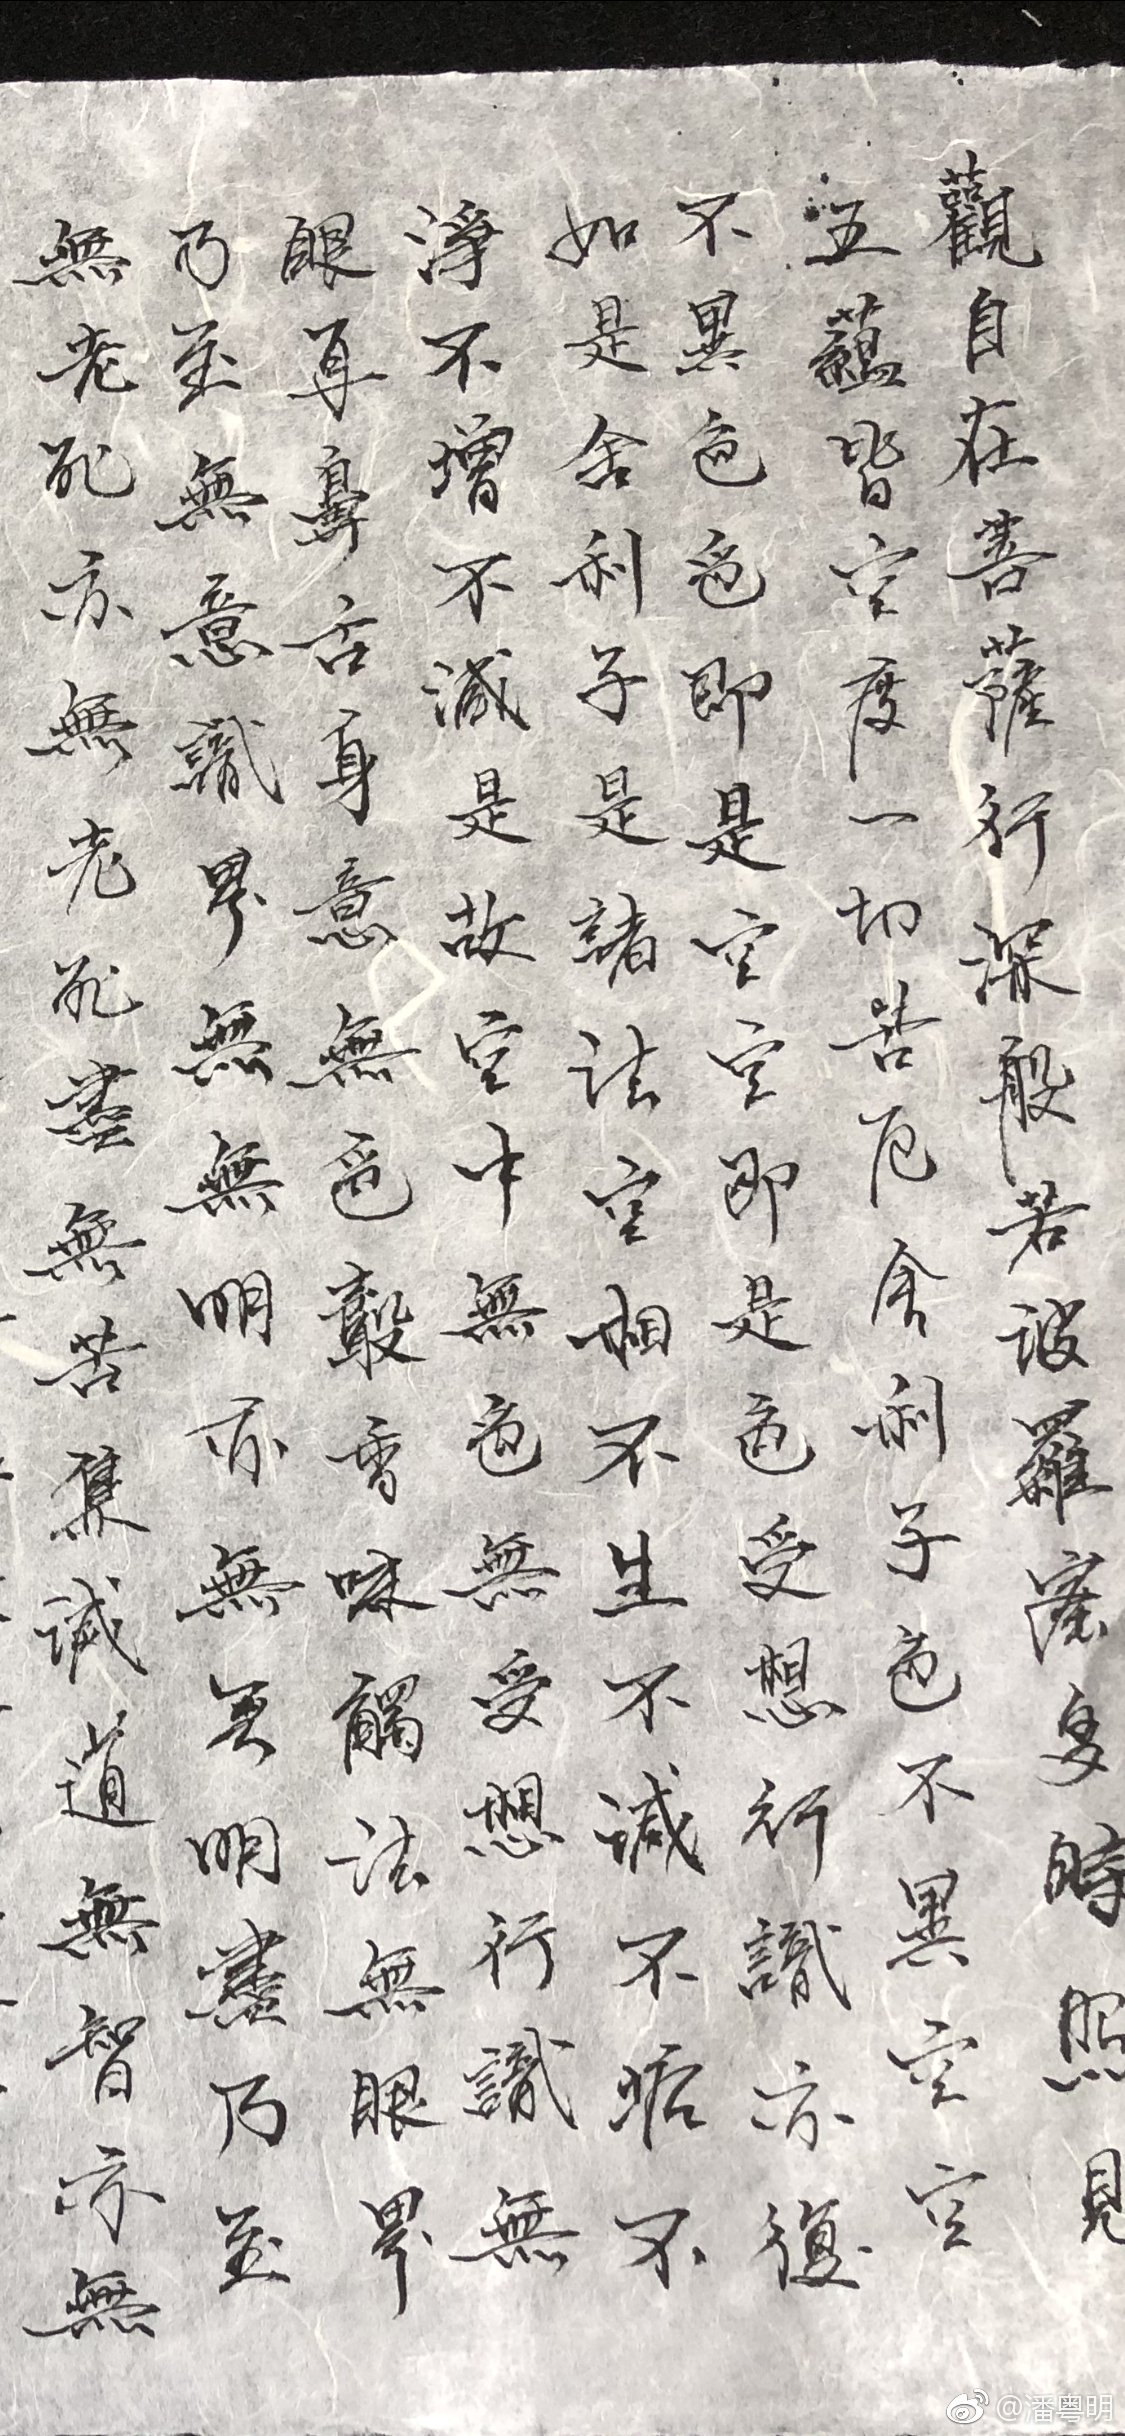 觀自在菩薩行深般若波羅蜜多時照見
五蘊皆空度一切苦厄舍利子色不異空空
不異色色即是空空即是色受想行識亦復
如是舍利子是諸法空相不生不滅不垢不
淨不增不減是故空中無色無受想行識無
眼耳鼻舌身意無色聲香味觸法無眼界
乃至無意識界無無明亦無无明盡乃至
無老死亦無老死盡無苦集滅道無智亦無
@潘粤明